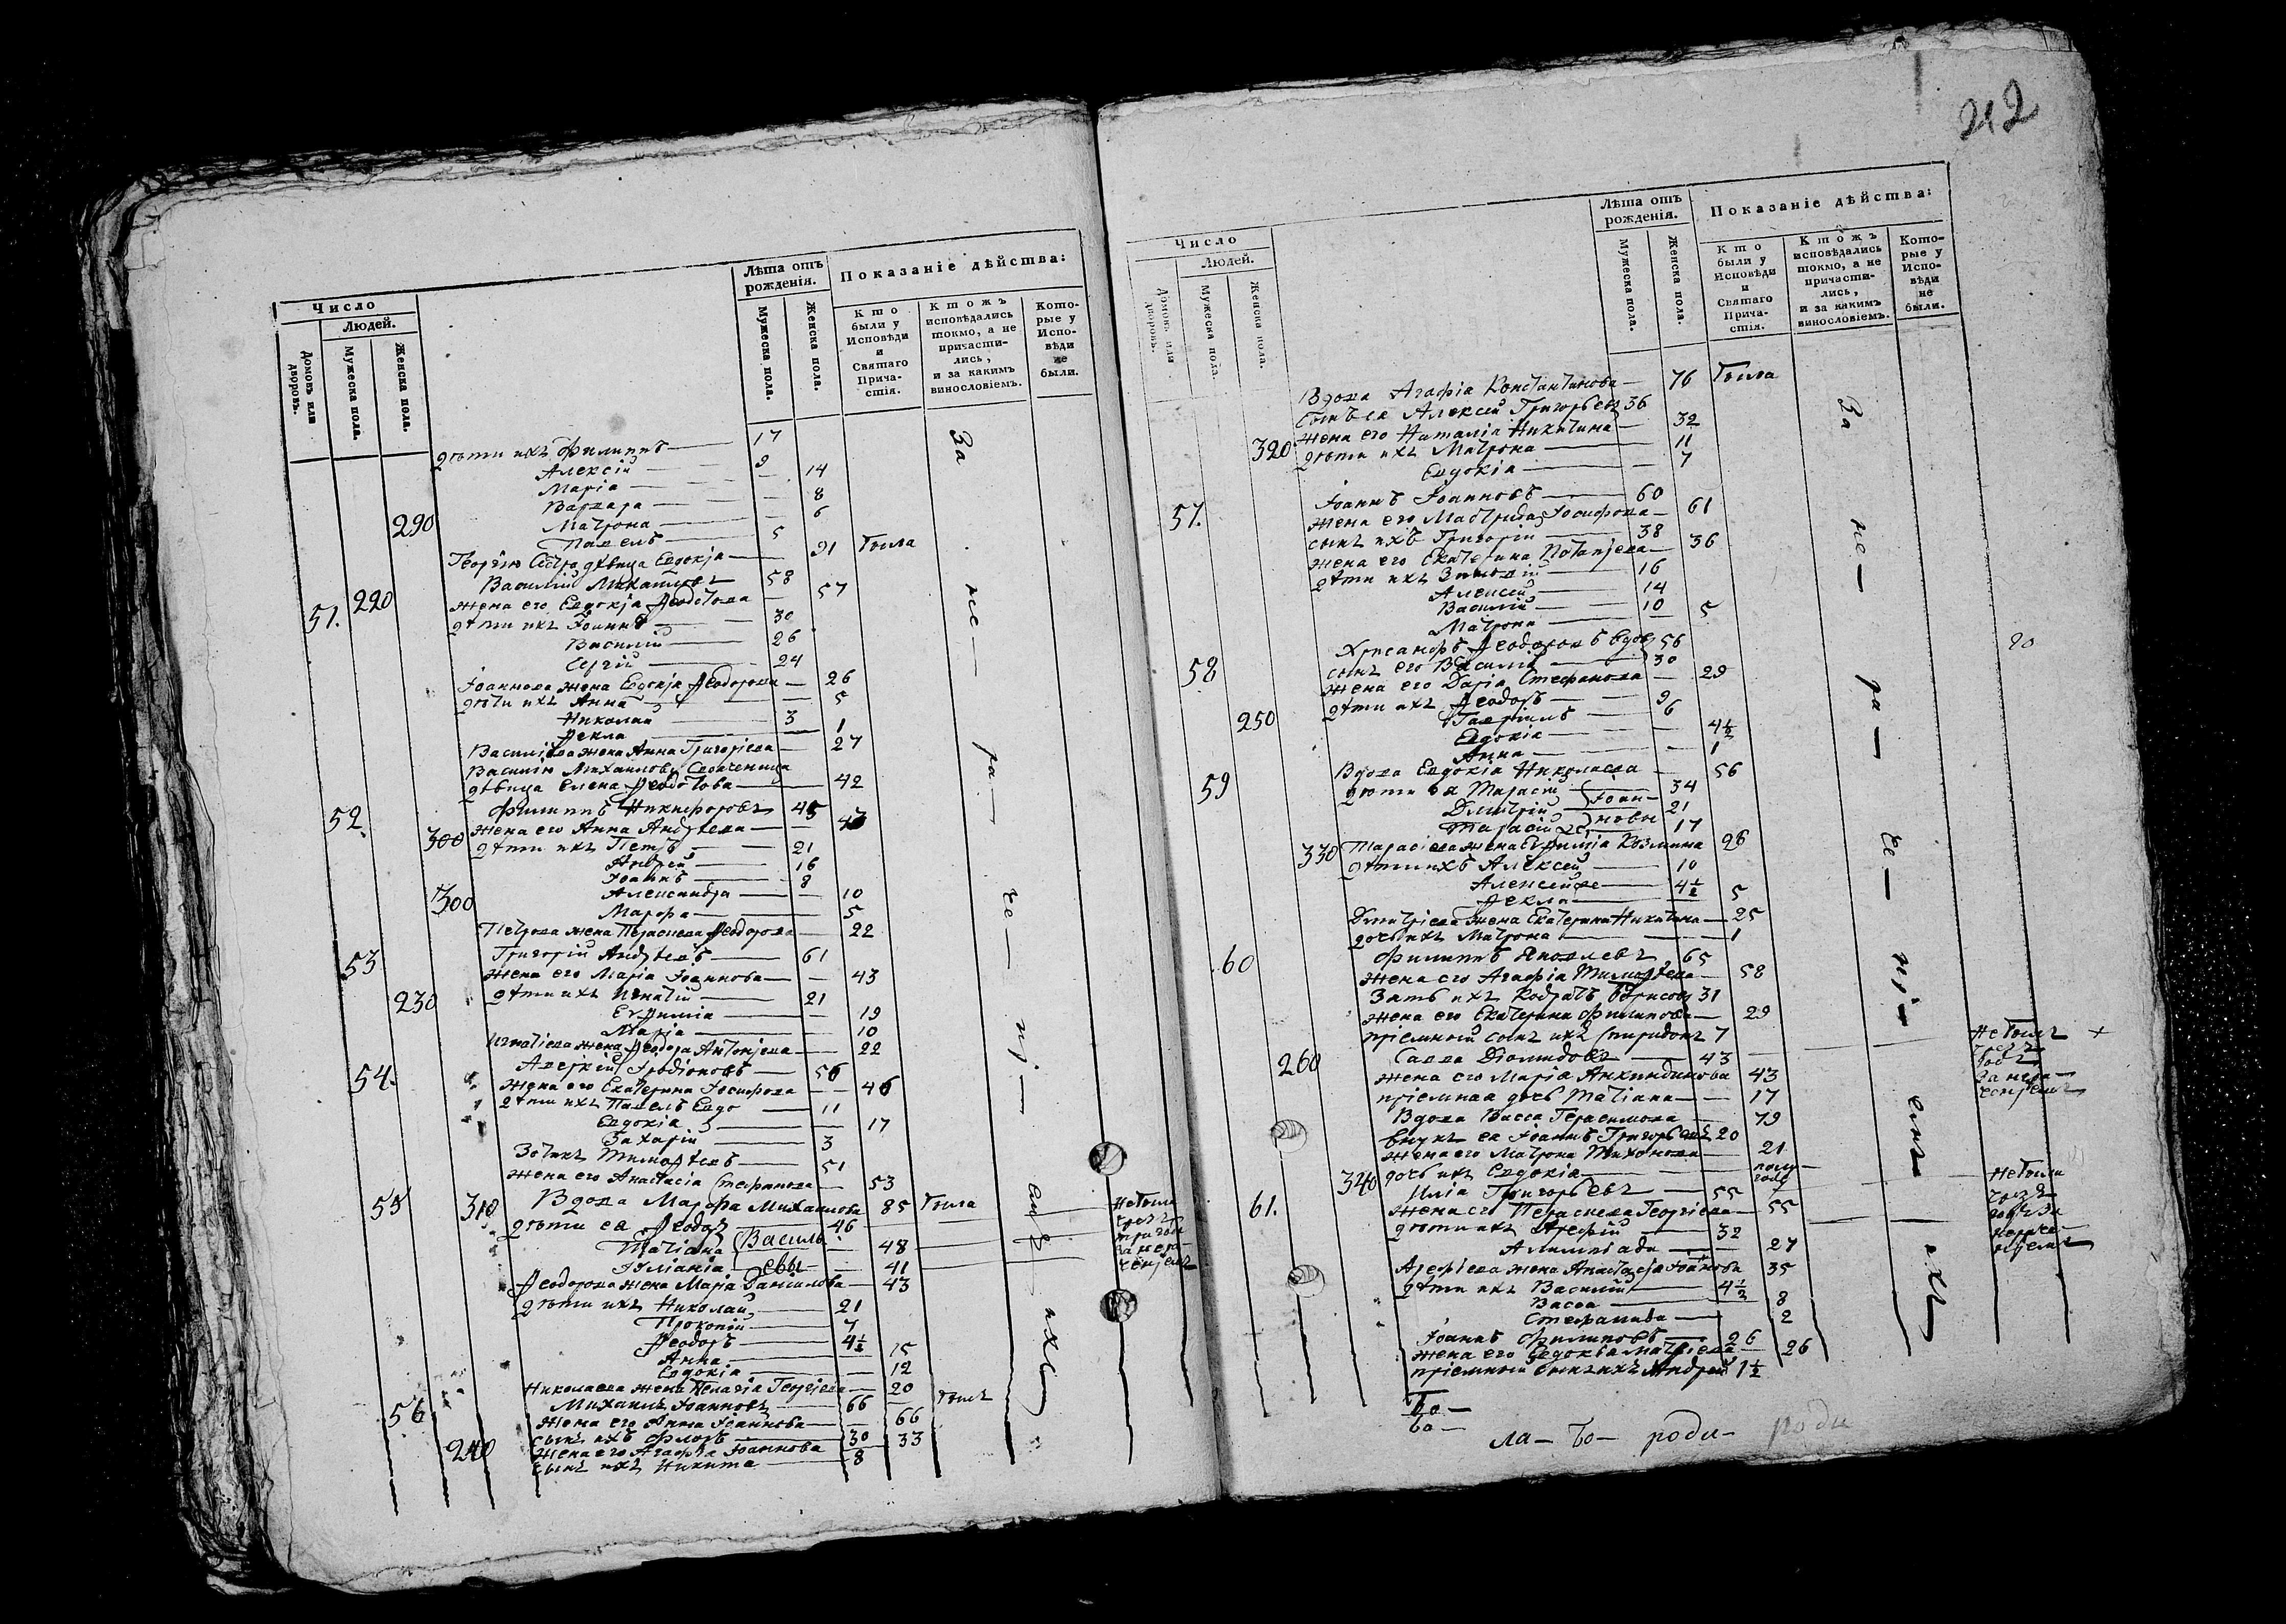 Число
Людей.
Домовъ или дворовъ.
Мужеска пола.
Женска пола.
Лѣта отъ рожденія.
Мужеска пола.
Женска пола.
Показаніе дѣйства:
Кто были у Исповѣди и Святаго Прича-стія.
Ктожъ исповѣдались токмо, а не причасти-лись, и за какимъ винословіемъ.
Кото-рые у Испо-вѣди не были.
дѣти ихъ Филиппъ 17
Алексій 9
Марія 14
Варвара 8
290 Матрона 6
Павелъ 5
дѣвица Евдокія 91 была
51. 220 Василій Михайловъ 58
жена его Евдокія Ѳеодотова 57
дѣти ихъ Іоаннъ 30
Василій 26
Сергій 24
Іоаннова жена Евдокія Ѳеодорова 26
дѣти ихъ Анна 5
Николай 3
Ѳекла 1
Василіева жена Анна Григоріева 27
Василію Михайлову
дѣвица Елена Ѳеодотова 42
52. Филиппъ Никифоровъ 45
300 жена его Анна Андреева 43
дѣти ихъ Петръ 21
Андрей 16
Іоаннъ 8
300 Александра 10
Марѳа 5
Петрова жена Параскева Ѳеодорова 22
53 Григорій Андреевъ 61
жена его Марія Іоаннова 43
230 дѣти ихъ Игнатій 21
Евѳимія 19
Марія 10
Игнатіева жена Ѳеодора Антоніева 22
54. Аверкій Иродіоновъ 56
жена его Екатерина Іосифова 46
дѣти ихъ Павелъ 11
Евдокія 17
Захарій 3
Зотикъ Тимоѳеевъ 51
жена его Анастасія Стефанова 53
55 310 Вдова Марѳа Михаилова 85 была
дѣти ея Ѳеодоръ 46
Татіана Василь- 48
Іуліанія евы 41
Ѳеодорова жена Марія Даніилова 43
дѣти ихъ Николай 21
Прокопій 7
Ѳеодоръ 4½
Анна 15
Евдокія 12
Николаева жена Пелагія Георгіева 20
56 Михаилъ Іоанновъ 66 былъ
жена его Анна Іоаннова 66
сынъ ихъ Флоръ 30
240 жена его Агаѳія Іоаннова 33
сынъ ихъ Никита 8
За не-ра-че-ні-емъ ихъ
не была
212
Число
Людей.
Домовъ или дворовъ.
Мужеска пола.
Женска пола.
Лѣта отъ рожденія.
Мужеска пола.
Женска пола.
Показаніе дѣйства:
Кто были у Исповѣди и Святаго Прича-стія.
Ктожъ исповѣдались токмо, а не причасти-лись, и за какимъ винословіемъ.
Кото-рые у Испо-вѣди не были.
Вдова Агафіа Константинова 76 была
сынъ ея Алексій Григорьевъ 36
жена его Наталіа Никитина 32
320 дѣти ихъ Матрона 11
Евдокіа 7
57. Іоаннъ Іоанновъ 60
жена его Мастридіа Іосифова 61
сынъ ихъ Григорій 38
жена его Екатерина Потапіева 36
дѣти ихъ Зиновій 16
Алексей 14
Василій 10
Матрона 5
58 Хрисанфъ Ѳеодоровъ вдовъ 56
сынъ его Василій 30
жена его Даріа Стефанова 29
дѣти ихъ Ѳеодоръ 9
250 Гавріилъ 6
Евдокіа 4½
Анна 1
59 Вдова Евдокіа Николаева 56
дѣти ея Тарасій Іоан- 34
Димитрій новы 21
Тарасій 17
330 Тарасіева жена Евѳиміа Козмина 26
дѣти ихъ Алексей 10
Алексей же 4½
Ѳекла 5
Дмитріева жена Екатерина Никитина 25
дочь ихъ Матрона 1
60 Филиппъ Яковлевъ 65
жена его Агафіа Тимоѳеева 58
Зять ихъ Кодратъ Борисовъ 31
жена его Екатерина Филипова 29
пріемный сынъ ихъ Спиридонъ 7
260 Савва Діомидовъ 43
жена его Маріа Анкиндинова 43
пріемная дочь Татіана 17
Вдова Васса Герасимова 79
внукъ ея Іоаннъ Григорьевъ 20
жена его Матрона Тихонова 21
340 дочь ихъ Евдокіа полу-года
61. Иліа Григорьевъ 55
жена его Параскева Георгіева 55
дѣти ихъ Арефій 32
Алимпіада 27
Арефіева жена Анастасіа Іоаннова 35
дѣти ихъ Василій 4½
Васса 8
Стефанида 2
Іоаннъ Филиповъ 26
жена его Евдокіа Матвіева 26
пріемный сынъ ихъ Андрей 1½
За не-ра-че-ні-емъ ихъ
20
не былъ
не была
Бо-
во-
ла- бо- роди- роди